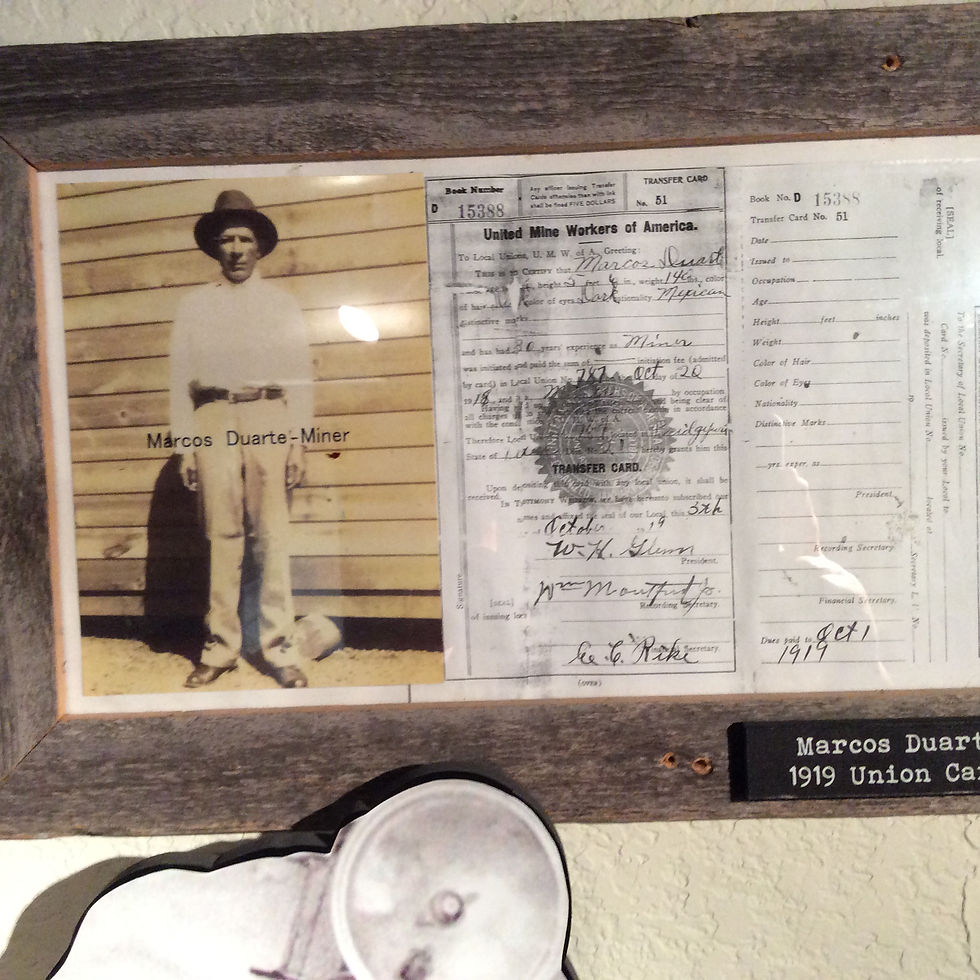 Marcos Duarte-Miner
Book Number
D 15388
Any officer issuing Transfer
Cards otherwise than with ink
shall be fined FIVE DOLLARS
TRANSFER CARD
No. 51
United Mine Workers of America.
To Local Unions, U. M. W. of A., Greeting:
THIS IS TO CERTIFY that Marcos Duart
height 5 feet 6 in., weight 146 lbs., color
of hair color of eyes Dark nationality Mexican
distinctive marks
and has had 30 years' experience as Miner
was initiated and paid the sum of initiation fee (admitted
by card) in Local Union No. 787 Oct day of 20
1918 by occupation
Having being clear of
all charges in accordance
with the
Therefore Local
State of hereby grants him this
TRANSFER CARD.
Upon depositing this card with any local union, it shall be
received.
IN TESTIMONY WHEREOF, we have hereunto subscribed our
names and affixed the seal of our Local, this 5th
October 19
W. H. Glenn
President.
Wm
Recording Secretary.
[SEAL]
of issuing local
Signature
Geo. C. Rike
Financial Secretary.
(OVER)
Book No. D 15388
Transfer Card No. 51
Date
Issued to
Occupation
Age
Height feet inches
Weight
Color of Hair
Color of Eyes
Nationality
Distinctive Marks
yrs. exper. as
President
Recording Secretary.
Financial Secretary.
Dues paid to Oct 1
1919
[SEAL]
of receiving local.
To the Secretary of Local Union No.
Card No. issued by your Local to
was deposited in Local Union No. located at
Secretary L. U. No.
Marcos Duart
1919 Union Ca